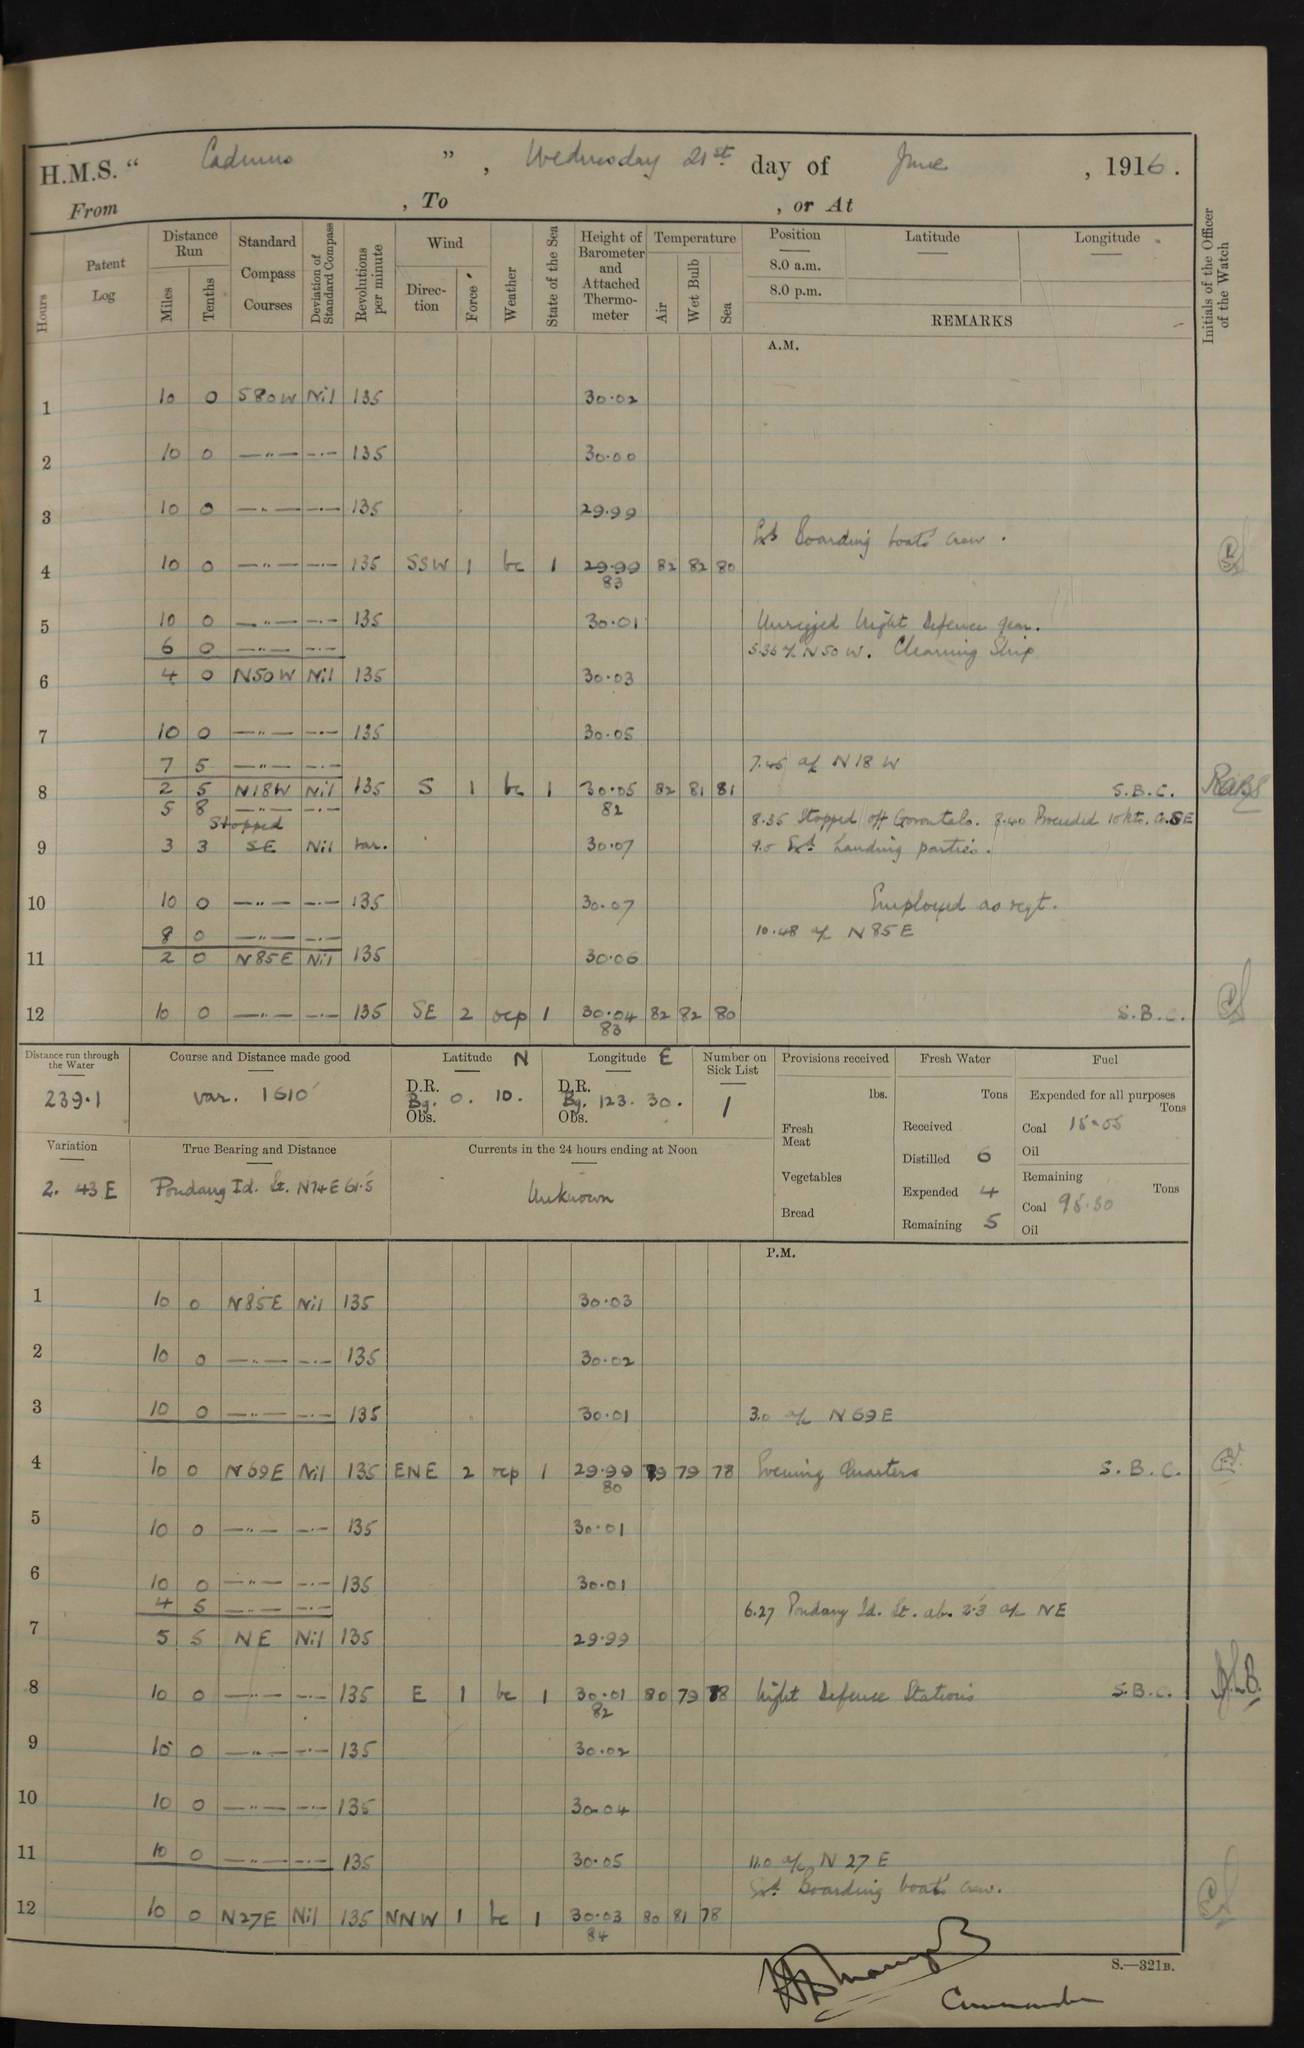 H.M.S. “ Cadmus ”, Wednesday 21st day of June, 1916.
From , To , or At
Hours
Patent Log
Distance Run
Miles
Tenths
Standard Compass Courses
Deviation of Standard Compass
Revolutions per minute
Wind
Direction
Force
Weather
State of the Sea
Height of Barometer and Attached Thermometer
Temperature
Air
Wet Bulb
Sea
Position
Latitude
Longitude
8.0 a.m.
8.0 p.m.
REMARKS
Initials of the Officer of the Watch
A.M.
1 10 0 S80W Nil 135 30.02
2 10 0 —"— —"— 135 30.00
3 10 0 —"— —"— 135 29.99
Boarding boats' crew.
4 10 0 —"— —"— 135 SSW 1 bc 1 29.99 82 82 80
83
5 10 0 —"— —"— 135 30.01 Unrigged Night Defence gear.
6 0 —"— —"— 5.36 a/c N50W. Cleaning Ship
6 4 0 N50W Nil 135 30.03
7 10 0 —"— —"— 135 30.05
7 5 —"— —"— 7.45 a/c N18W
8 2 5 N18W Nil 135 S 1 bc 1 30.05 82 81 81 S.B.C.
5 8 —"— —"— 82
Stopped 8.35 Stopped off Gorontalo. 8.40 Proceeded 10 kts. Co. SE
9 3 3 SE Nil var. 30.07 9.0 Landing parties.
10 10 0 —"— —"— 135 30.07 Employed as reqt.
8 0 —"— —"— 10.48 a/c N85E
11 2 0 N85E Nil 135 30.06
12 10 0 —"— —"— 135 SE 2 ocp 1 30.04 82 82 80 S.B.C.
83
Distance run through the Water
239.1
Course and Distance made good
var. 1610'
Latitude N
D.R.
Bg. 0. 10.
Obs.
Longitude E
D.R.
Bg. 123. 30.
Obs.
Number on Sick List
1
Variation
2. 43 E
True Bearing and Distance
Pondang Id. Lt. N74E 61.5
Currents in the 24 hours ending at Noon
Unknown
Provisions received
lbs.
Fresh Meat
Vegetables
Bread
Fresh Water
Tons
Received
Distilled 6
Expended 4
Remaining 5
Fuel
Expended for all purposes
Tons
Coal 18.05
Oil
Remaining
Tons
Coal 98.30
Oil
P.M.
1 10 0 N85E Nil 135 30.03
2 10 0 —"— —"— 135 30.02
3 10 0 —"— —"— 135 30.01 3.0 a/c N69E
4 10 0 N69E Nil 135 ENE 2 ocp 1 29.99 79 79 78 Evening Quarters S.B.C.
80
5 10 0 —"— —"— 135 30.01
6 10 0 —"— —"— 135 30.01
4 5 —"— —"— 6.27 Pondang Id. Lt. ab. 3.3 a/c NE
7 5 5 NE Nil 135 29.99
8 10 0 —"— —"— 135 E 1 bc 1 30.01 80 79 78 Night Defence Stations S.B.C.
82
9 10 0 —"— —"— 135 30.02
10 10 0 —"— —"— 135 30.04
11 10 0 —"— —"— 135 30.05 11.0 a/c N27E
Boarding boats' crew.
12 10 0 N27E Nil 135 NNW 1 bc 1 30.03 80 81 78
84
S.—321B.
Commander